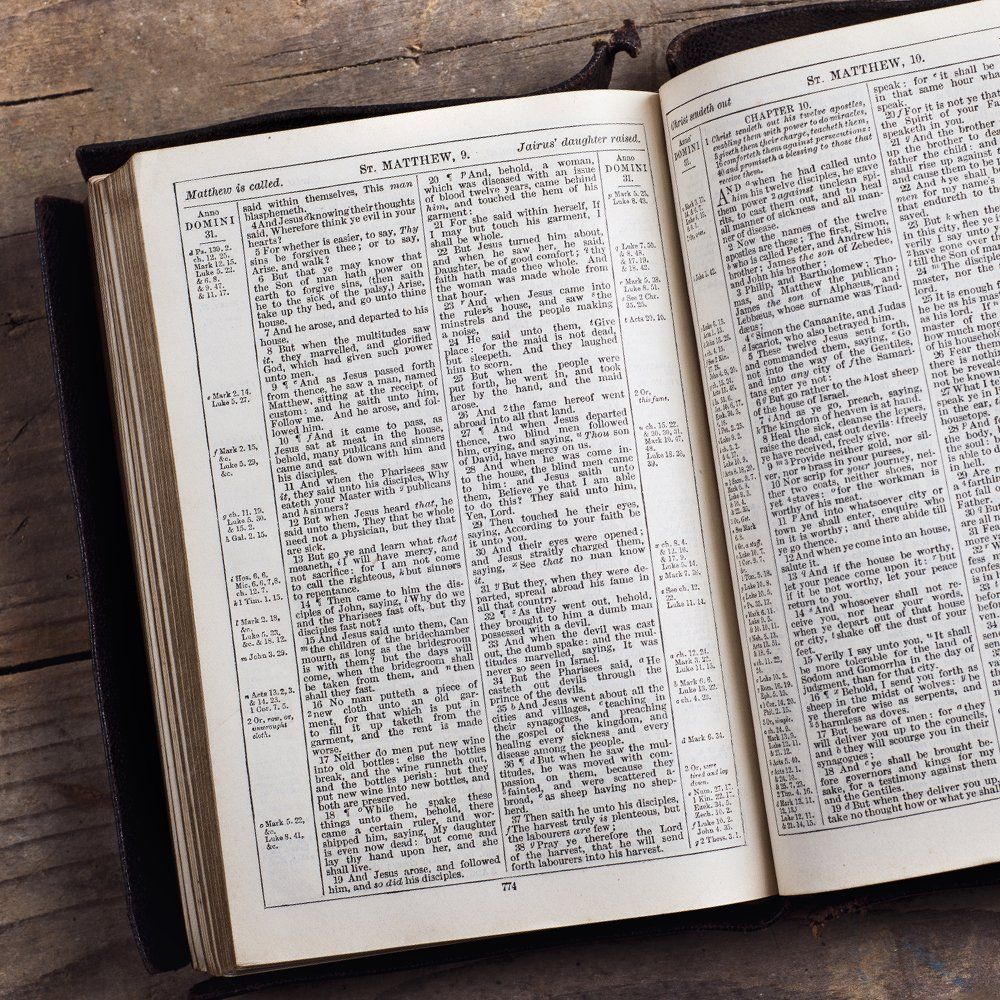 Matthew is called.
ST. MATTHEW, 9.
Jairus' daughter raised.
Anno
DOMINI
31.
a Ps. 139. 2.
ch. 12. 25.
Mark 12. 15.
Luke 5. 22.
& 6. 8.
& 9. 47.
& 11. 17.
e Mark 2. 14.
Luke 5. 27.
f Mark 2. 15,
&c.
Luke 5. 29,
&c.
g ch. 11. 19.
Luke 5. 30.
& 15. 2.
h Gal. 2. 15.
i Hos. 6. 6.
Mic. 6. 6, 7, 8.
ch. 12. 7.
k 1 Tim. 1. 15.
l Mark 2. 18,
&c.
Luke 5. 33,
&c. & 18. 12.
m John 3. 29.
n Acts 13. 2, 3.
& 14. 23.
1 Cor. 7. 5.
2 Or, raw, or,
unwrought
cloth.
o Mark 5. 22,
&c.
Luke 8. 41,
&c.
said within themselves, This man
blasphemeth.
4 And Jesus knowing their thoughts
said, Wherefore think ye evil in your
hearts?
5 For whether is easier, to say, Thy
sins be forgiven thee; or to say,
Arise, and walk?
6 But that ye may know that
the Son of man hath power on
earth to forgive sins, (then saith
he to the sick of the palsy,) Arise,
take up thy bed, and go unto thine
house.
7 And he arose, and departed to his
house.
8 But when the multitudes saw
it, they marvelled, and glorified
God, which had given such power
unto men.
9 ¶ e And as Jesus passed forth
from thence, he saw a man, named
Matthew, sitting at the receipt of
custom: and he saith unto him,
Follow me. And he arose, and fol-
lowed him.
10 ¶ f And it came to pass, as
Jesus sat at meat in the house,
behold, many publicans and sinners
came and sat down with him and
his disciples.
11 And when the Pharisees saw
it, they said unto his disciples, Why
eateth your Master with g publicans
and h sinners?
12 But when Jesus heard that, he
said unto them, They that be whole
need not a physician, but they that
are sick.
13 But go ye and learn what that
meaneth, i I will have mercy, and
not sacrifice: for I am not come
to call the righteous, k but sinners
to repentance.
14 ¶ Then came to him the dis-
ciples of John, saying, l Why do we
and the Pharisees fast oft, but thy
disciples fast not?
15 And Jesus said unto them, Can
m the children of the bridechamber
mourn, as long as the bridegroom
is with them? but the days will
come, when the bridegroom shall
be taken from them, and n then
shall they fast.
16 No man putteth a piece of
2 new cloth unto an old gar-
ment, for that which is put in
to fill it up taketh from the
garment, and the rent is made
worse.
17 Neither do men put new wine
into old bottles: else the bottles
break, and the wine runneth out,
and the bottles perish: but they
put new wine into new bottles, and
both are preserved.
18 ¶ o While he spake these
things unto them, behold, there
came a certain ruler, and wor-
shipped him, saying, My daughter
is even now dead: but come and
lay thy hand upon her, and she
shall live.
19 And Jesus arose, and followed
him, and so did his disciples.
20 ¶ p And, behold, a woman,
which was diseased with an issue
of blood twelve years, came behind
him, and touched the hem of his
garment:
21 For she said within herself, If
I may but touch his garment, I
shall be whole.
22 But Jesus turned him about,
and when he saw her, he said,
Daughter, be of good comfort; thy
faith hath made thee whole. And
the woman was made whole from
that hour.
23 And when Jesus came into
the ruler's house, and saw the
minstrels and the people making
a noise,
24 He said unto them, Give
place: for the maid is not dead,
but sleepeth. And they laughed
him to scorn.
25 But when the people were
put forth, he went in, and took
her by the hand, and the maid
arose.
26 And 2 the fame hereof went
abroad into all that land.
27 ¶ And when Jesus departed
thence, two blind men followed
him, crying, and saying, Thou son
of David, have mercy on us.
28 And when he was come in-
to the house, the blind men came
to him: and Jesus saith unto
them, Believe ye that I am able
to do this? They said unto him,
Yea, Lord.
29 Then touched he their eyes,
saying, According to your faith be
it unto you.
30 And their eyes were opened;
and Jesus straitly charged them,
saying, See that no man know
it.
31 But they, when they were de-
parted, spread abroad his fame in
all that country.
32 ¶ As they went out, behold,
they brought to him a dumb man
possessed with a devil.
33 And when the devil was cast
out, the dumb spake: and the mul-
titudes marvelled, saying, It was
never so seen in Israel.
34 But the Pharisees said, He
casteth out devils through the
prince of the devils.
35 b And Jesus went about all the
cities and villages, teaching in
their synagogues, and preaching
the gospel of the kingdom, and
healing every sickness and every
disease among the people.
36 ¶ d But when he saw the mul-
titudes, he was moved with com-
passion on them, because they
fainted, and were scattered a-
broad, as sheep having no shep-
herd.
37 Then saith he unto his disciples,
The harvest truly is plenteous, but
the labourers are few;
38 Pray ye therefore the Lord
of the harvest, that he will send
forth labourers into his harvest.
Anno
DOMINI
31.
p Mark 5. 25.
Luke 8. 43.
r Luke 7. 50.
& 8. 48.
& 17. 19.
& 18. 42.
s Mark 5. 38.
Luke 8. 51.
t Acts 20. 10.
2 Or,
this fame.
d Mark 6. 34.
774
Christ sendeth out
ST. MATTHEW, 10.
CHAPTER 10.
1 Christ sendeth out his twelve apostles,
enabling them with power to do miracles,
5 giveth them their charge, teacheth them,
16 comforteth them against persecutions:
40 and promiseth a blessing to those that
receive them.
AND a when he had called unto
him his twelve disciples, he gave
them power against unclean spi-
rits, to cast them out, and to heal
all manner of sickness and all man-
ner of disease.
2 Now the names of the twelve
apostles are these; The first, Simon,
b who is called Peter, and Andrew his
brother; James the son of Zebedee,
and John his brother;
3 Philip, and Bartholomew; Tho-
mas, and Matthew the publican;
James the son of Alphæus, and
Lebbæus, whose surname was Thad-
dæus;
4 Simon the Canaanite, and Judas
Iscariot, who also betrayed him.
5 These twelve Jesus sent forth,
and commanded them, saying, Go
not into the way of the Gentiles,
and into any city of the Samari-
tans enter ye not:
6 But go rather to the lost sheep
of the house of Israel.
7 And as ye go, preach, saying,
The kingdom of heaven is at hand.
8 Heal the sick, cleanse the lepers,
raise the dead, cast out devils: freely
ye have received, freely give.
9 Provide neither gold, nor sil-
ver, nor brass in your purses,
10 Nor scrip for your journey, nei-
ther two coats, neither shoes, nor
yet staves: for the workman is
worthy of his meat.
11 And into whatsoever city or
town ye shall enter, enquire who
in it is worthy; and there abide till
ye go thence.
12 And when ye come into an house,
salute it.
13 And if the house be worthy,
let your peace come upon it: but
if it be not worthy, let your peace
return to you.
14 And whosoever shall not re-
ceive you, nor hear your words,
when ye depart out of that house
or city, shake off the dust of your
feet.
15 Verily I say unto you, It shall
be more tolerable for the land of
Sodom and Gomorrha in the day of
judgment, than for that city.
16 ¶ Behold, I send you forth as
sheep in the midst of wolves: be
ye therefore wise as serpents, and
harmless as doves.
17 But beware of men: for they
will deliver you up to the councils,
and they will scourge you in their
18 And ye shall be brought be-
fore governors and kings for my
sake, for a testimony against them
and the Gentiles.
19 But when they deliver you up,
take no thought how or what ye shall
speak: for it shall be
in that same hour what
speak.
20 For it is not ye tha
the Spirit of your Fa
speaketh in you.
21 And the brother
up the brother to de
father the child: and
shall rise up against
22 And ye shall be
men for my name's
that endureth to
saved.
23 But when the
in this city, flee
verily I say unto